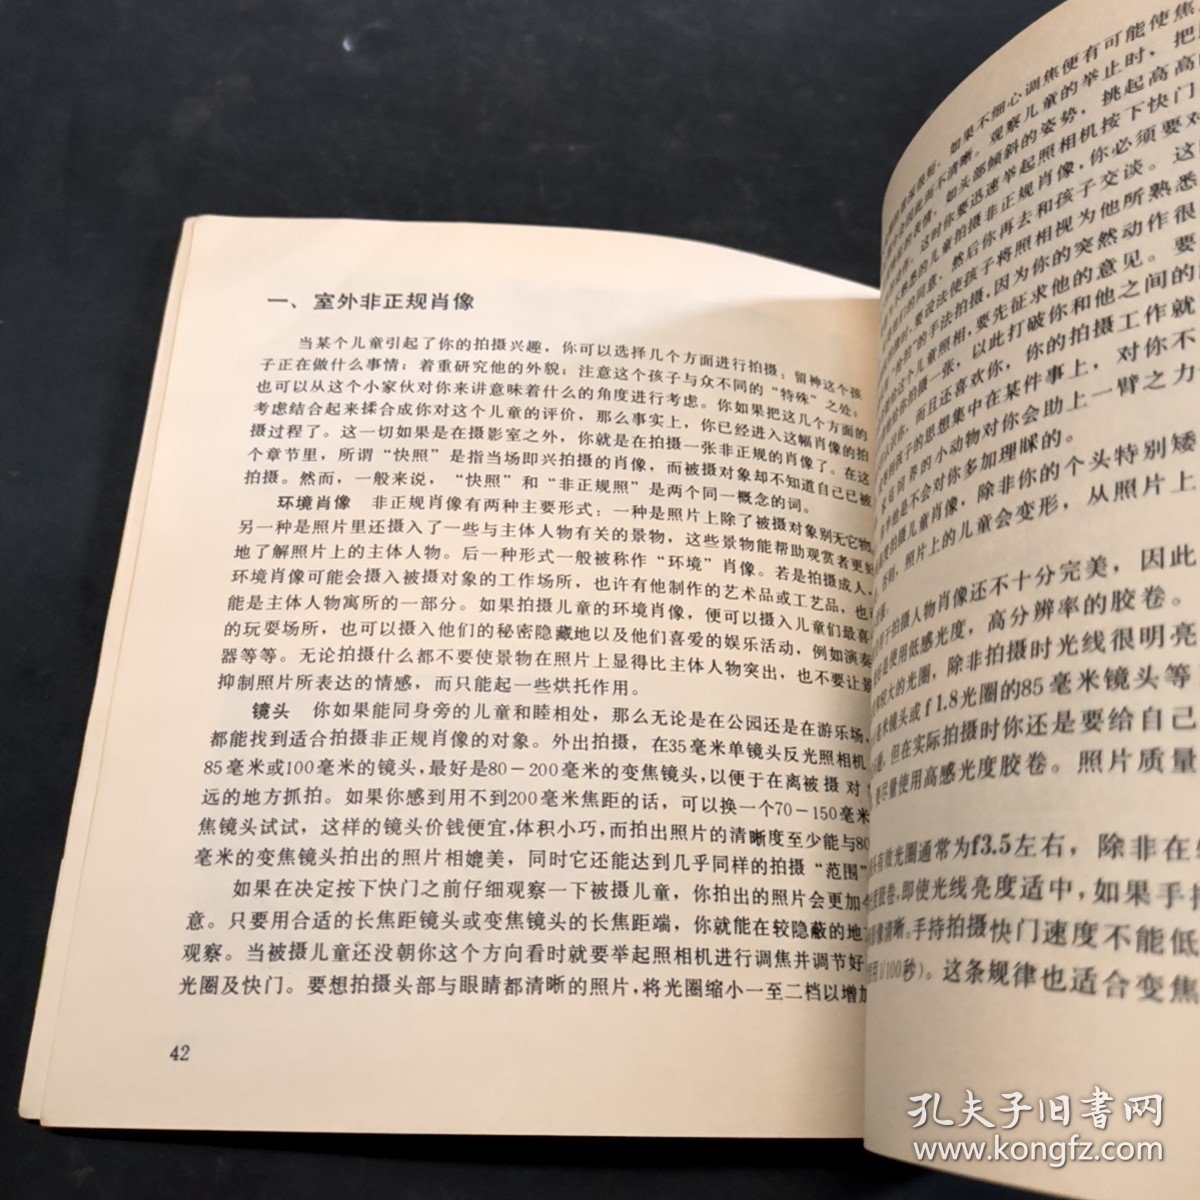 一、室外非正规肖像
当某个儿童引起了你的拍摄兴趣，你可以选择几个方面进行拍摄：留神这个孩
子正在做什么事情；着重研究他的外貌；注意这个孩子与众不同的“特殊”之处；
也可以从这个小家伙对你来讲意味着什么的角度进行考虑。你如果把这几个方面的
考虑结合起来揉合成你对这个儿童的评价，那么事实上，你已经进入这幅肖像的拍
摄过程了。这一切如果是在摄影室之外，你就是在拍摄一张非正规的肖像了。在这
个章节里，所谓“快照”是指当场即兴拍摄的肖像，而被摄对象却不知道自己已被
拍摄。然而，一般来说，“快照”和“非正规照”是两个同一概念的词。
环境肖像 非正规肖像有两种主要形式：一种是照片上除了被摄对象别无它物，
另一种是照片里还摄入了一些与主体人物有关的景物，这些景物能帮助观赏者更好
地了解照片上的主体人物。后一种形式一般被称作“环境”肖像。若是拍摄成人，
环境肖像可能会摄入被摄对象的工作场所，也许有他制作的艺术品或工艺品，也可
能是主体人物寓所的一部分。如果拍摄儿童的环境肖像，便可以摄入儿童们最喜
的玩耍场所，也可以摄入他们的秘密隐藏地以及他们喜爱的娱乐活动，例如演奏
器等等。无论拍摄什么都不要使景物在照片上显得比主体人物突出，也不要让景
抑制照片所表达的情感，而只能起一些烘托作用。
镜头 你如果能同身旁的儿童和睦相处，那么无论是在公园还是在游乐场，
都能找到适合拍摄非正规肖像的对象。外出拍摄，在35毫米单镜头反光照相机
85毫米或100毫米的镜头，最好是80－200毫米的变焦镜头，以便于在离被摄对
远的地方抓拍。如果你感到用不到200毫米焦距的话，可以换一个70－150毫米
焦镜头试试，这样的镜头价钱便宜，体积小巧，而拍出照片的清晰度至少能与80
毫米的变焦镜头拍出的照片相媲美，同时它还能达到几乎同样的拍摄“范围”
如果在决定按下快门之前仔细观察一下被摄儿童，你拍出的照片会更加令
意。只要用合适的长焦距镜头或变焦镜头的长焦距端，你就能在较隐蔽的地
观察。当被摄儿童还没朝你这个方向看时就要举起照相机进行调焦并调节好
光圈及快门。要想拍摄头部与眼睛都清晰的照片，将光圈缩小一至二档以增加
42
如果不细心调焦便有可能使焦
而不清晰。观察儿童的举止时，把
如头部倾斜的姿势，挑起高高
这时你要迅速举起照相机按下快门
的儿童拍摄非正规肖像，你必须要对
的同意，然后你再去和孩子交谈。这
要设法使孩子将照相视为他所熟悉
的手法拍摄，因为你的突然动作很
这个儿童照相，要先征求他的意见。要
拍摄一张，以此打破你和他之间的
而且还喜欢你，你的拍摄工作就
孩子的思想集中在某件事上，对你不
养的小动物对你会助上一臂之力
是不会对你多加理睬的。
拍摄儿童肖像，除非你的个头特别矮
否则，照片上的儿童会变形，从照片上
拍摄人物肖像还不十分完美，因此
是使用低感光度，高分辨率的胶卷。
较大的光圈，除非拍摄时光线很明亮
毫米镜头或f1.8光圈的85毫米镜头等
但在实际拍摄时你还是要给自己
要尽量使用高感光度胶卷。照片质量
有效光圈通常为f3.5左右，除非在
胶卷，即使光线亮度适中，如果手持
清晰。手持拍摄快门速度不能低
1/100秒）。这条规律也适合变焦
孔夫子旧书网
www.kongfz.com